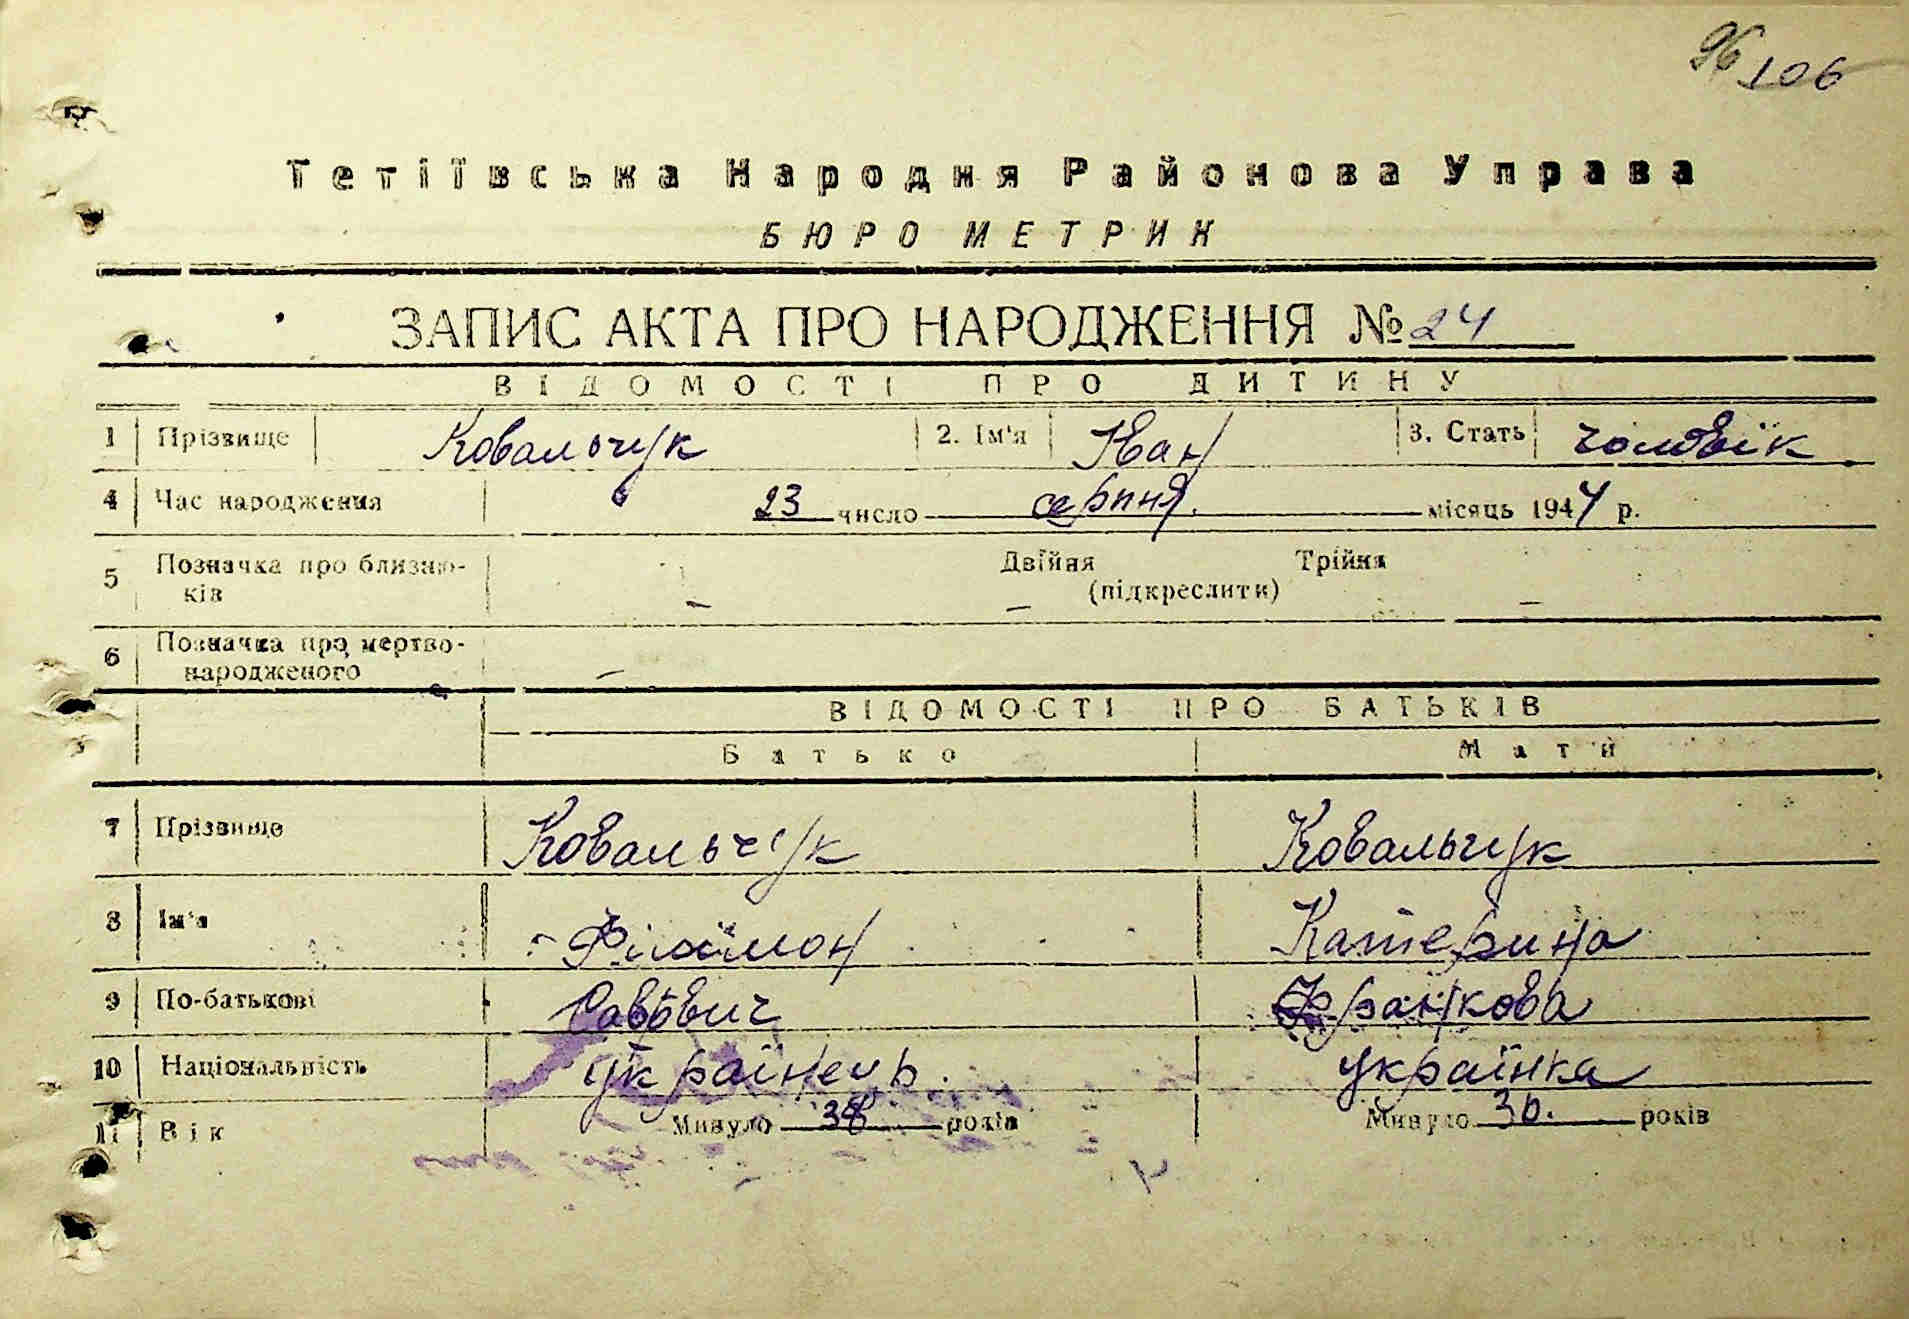 96 106
Тетіївська Народня Районова Управа
БЮРО МЕТРИК
ЗАПИС АКТА ПРО НАРОДЖЕННЯ № 24
ВІДОМОСТІ ПРО ДИТИНУ
1 Прізвище Ковальчук 2. Ім'я Іван 3. Стать чоловік
4 Час народження 23 число серпня місяць 1944 р.
5 Позначка про близню- Двійня Трійня
ків (підкреслити)
6 Позначка про мертво-
народженого
ВІДОМОСТІ ПРО БАТЬКІВ
Батько Мати
7 Прізвище Ковальчук Ковальчук
8 Ім'я Філімон Катерина
9 По-батькові Савович Франкова
10 Національність Українець українка
11 Вік Минуло 38 років Минуло 36. років